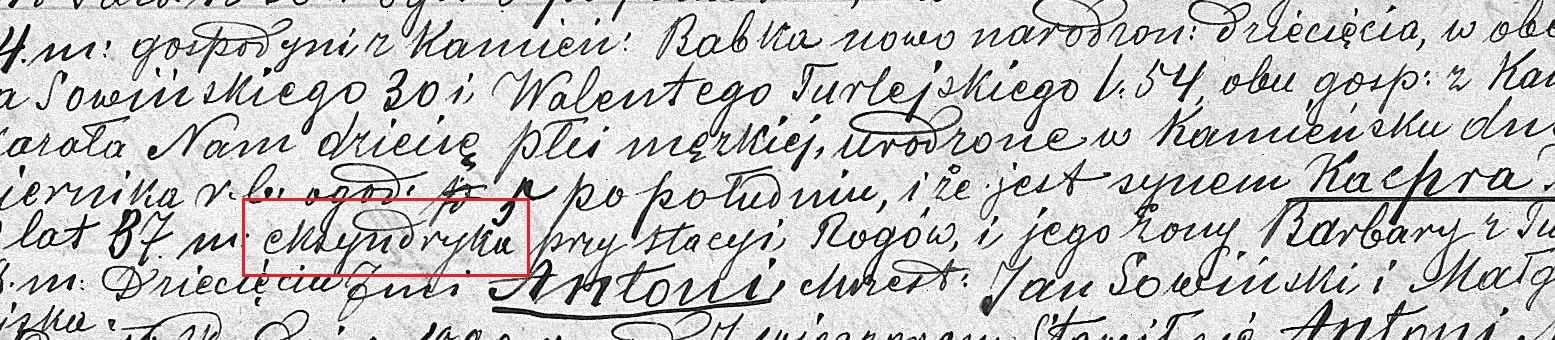 4. m: gospodyni z Kamień: Babka nowo narodzon: dziecięcia, w obe
a Sowińskiego 30 i, Walentego Turlejskiego l: 54, obu gosp: z Kam
karała Nam dziecię płci męzkiej, urodzone w Kamieńsku dn
iernika r. b. o god. 5 po południu, i że jest synem Kacpra
lat 37. m: ekszyndryka przy stacyi Rogów, i jego żony Barbary z Tu
m: Dziecięciu Imi Antoni, chrzest: Jan Sowiński i Małg
jska.
Antoni